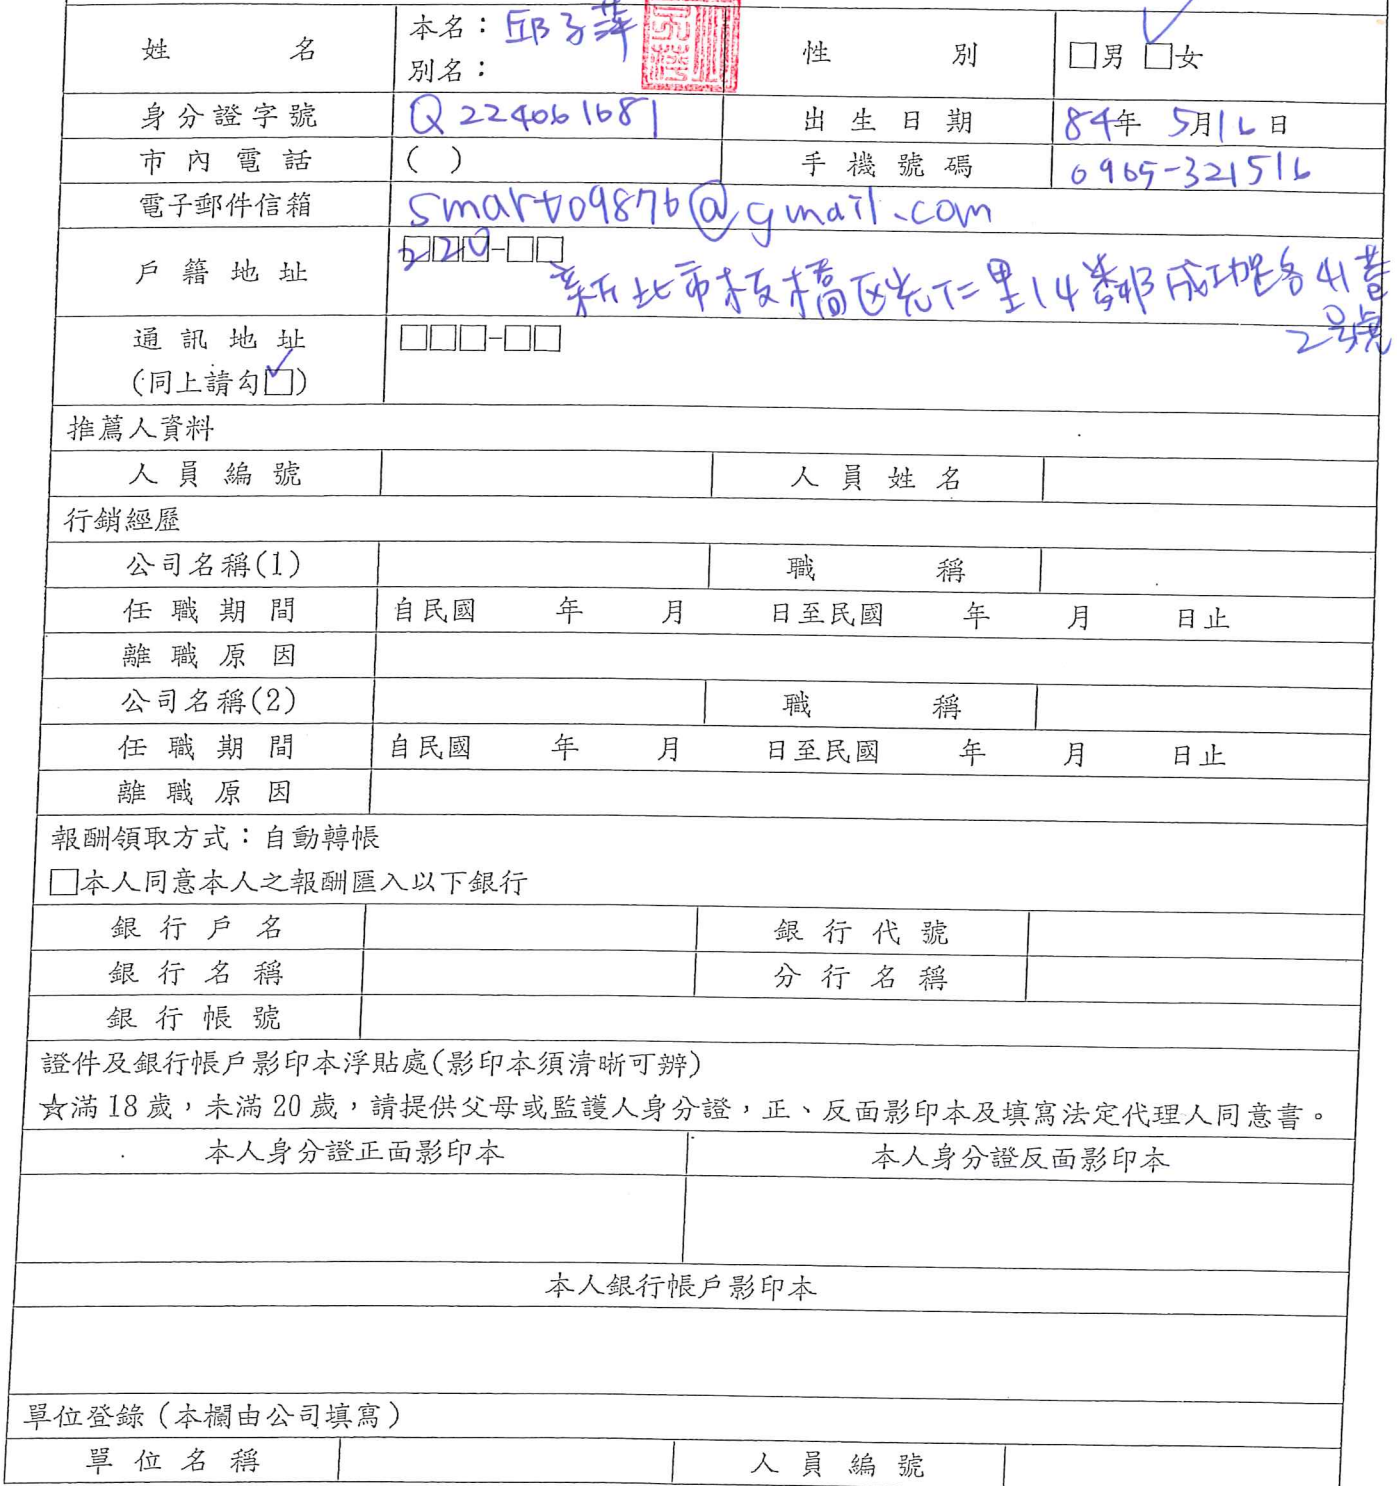 姓 名 本名：邱子萍 性 別 □男 □女
別名：
身分證字號 Q224061681 出生日期 84年 5月16日
市內電話 ( ) 手機號碼 0965-321516
電子郵件信箱 smarto9876@gmail.com
戶籍地址 220 □□□-□□
新北市板橋區光仁里14鄰成功路41巷
2號
通訊地址 □□□-□□
(同上請勾□)
推薦人資料
人員編號 人員姓名
行銷經歷
公司名稱(1) 職 稱
任職期間 自民國 年 月 日至民國 年 月 日止
離職原因
公司名稱(2) 職 稱
任職期間 自民國 年 月 日至民國 年 月 日止
離職原因
報酬領取方式：自動轉帳
□本人同意本人之報酬匯入以下銀行
銀行戶名 銀行代號
銀行名稱 分行名稱
銀行帳號
證件及銀行帳戶影印本浮貼處(影印本須清晰可辨)
☆滿18歲，未滿20歲，請提供父母或監護人身分證，正、反面影印本及填寫法定代理人同意書。
本人身分證正面影印本 本人身分證反面影印本
本人銀行帳戶影印本
單位登錄（本欄由公司填寫）
單位名稱 人員編號